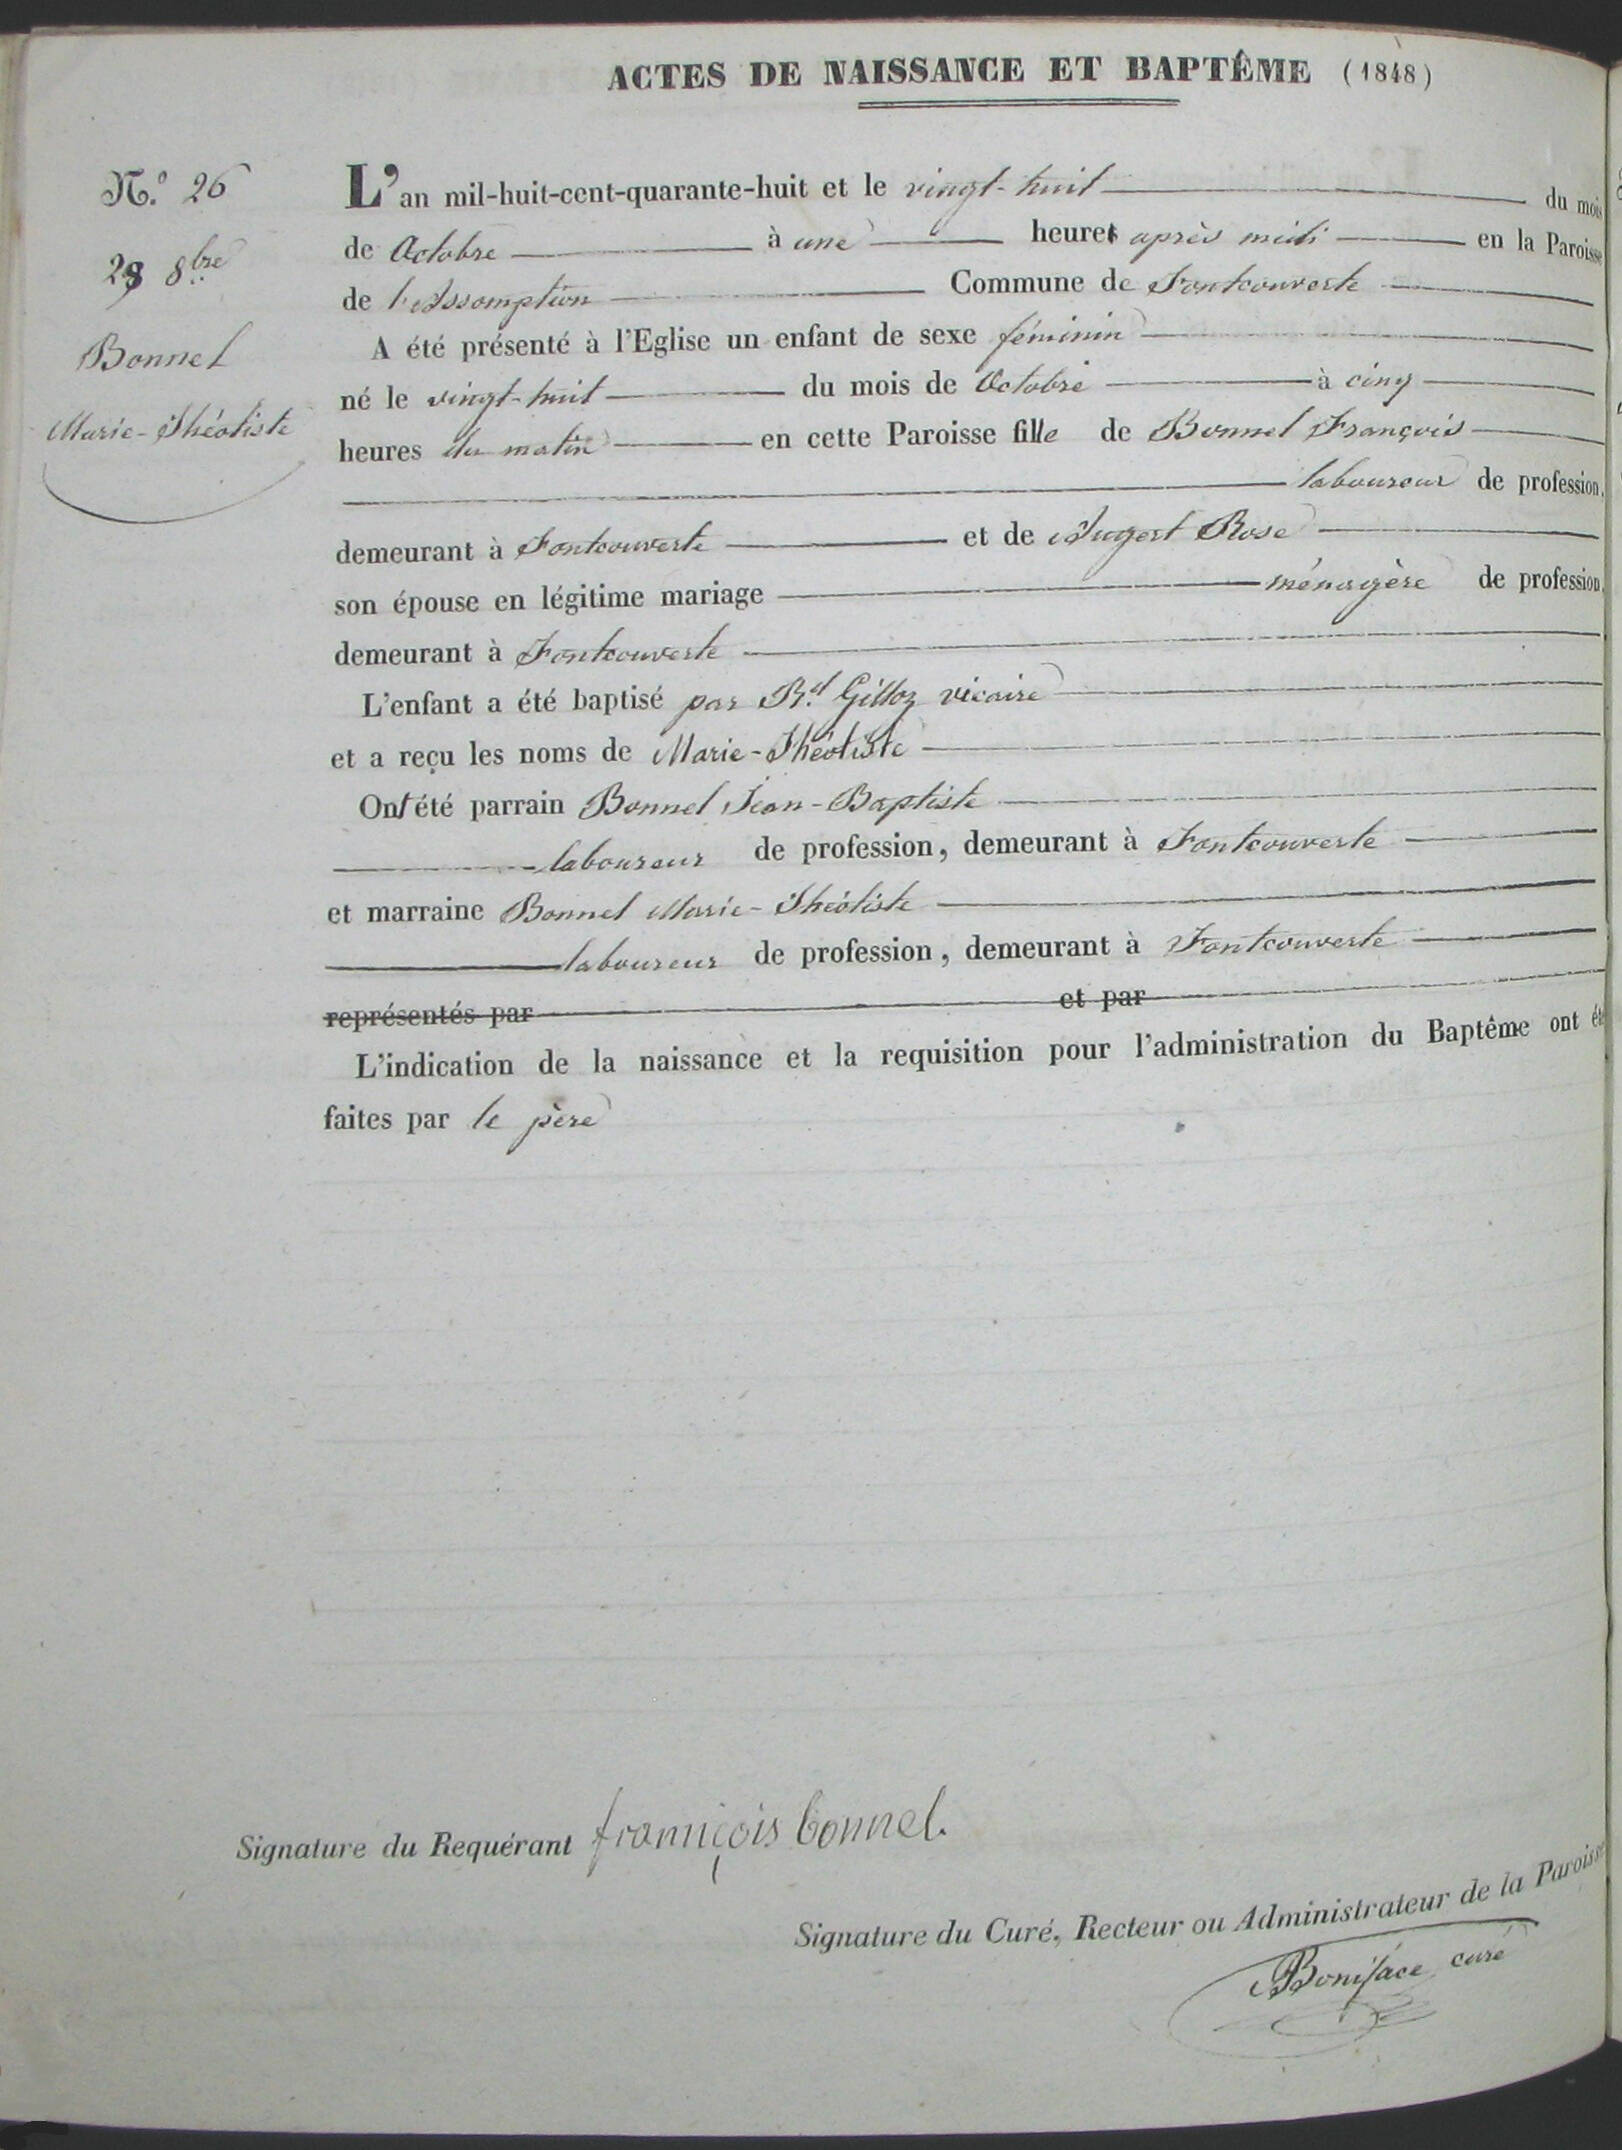 ACTES DE NAISSANCE ET BAPTÊME (1848)
N.º 26
28 8bre
Bonnel
Marie-Théotiste
L'an mil-huit-cent-quarante-huit et le vingt-huit du mois
de Octobre à une heure après midi en la Paroisse
de l'Assomption Commune de Fontcouverte
A été présenté à l'Eglise un enfant de sexe féminin
né le vingt-huit du mois de Octobre à cinq
heures du matin en cette Paroisse fille de Bonnel François
laboureur de profession,
demeurant à Fontcouverte et de Augert Rose
son épouse en légitime mariage ménagère de profession,
demeurant à Fontcouverte
L'enfant a été baptisé par Rd Gilloz vicaire
et a reçu les noms de Marie-Théotiste
Ont été parrain Bonnel Jean-Baptiste
laboureur de profession, demeurant à Fontcouverte
et marraine Bonnel Marie-Théotiste
laboureur de profession, demeurant à Fontcouverte
représentés par et par
L'indication de la naissance et la requisition pour l'administration du Baptême ont été
faites par le père
Signature du Requérant franiçois bonnel.
Signature du Curé, Recteur ou Administrateur de la Paroisse
Boniface curé